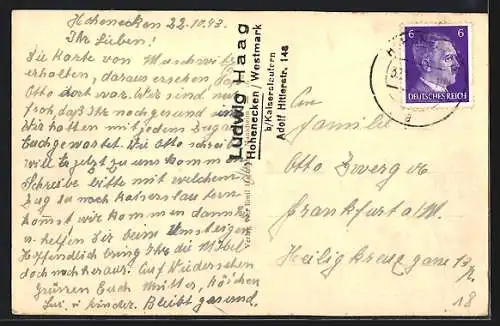 Hohenecken 22.10.43.
Ihr Lieben!
Die Karte von
erhalten, daraus ersehen daß
Otto dort war. Wir sind nur
froh, daß Ihr noch gesund
Wir hatten mit jedem Zug
Euch gewartet. Die Otto schreibt
will Er jetzt zu uns kommen
Schreibe bitte mit welchem
Zug Du nach Kaiserslautern
kommst wir kommen dann
u. helfen Dir beim Umsteigen
Hoffentlich bring Ihr die Möbel
doch noch heraus. Auf Wiedersehen
Grüssen Euch Mutter,
u. Kinder. Bleibt gesund.
Ludwig Haag
Hohenecken / Westmark
b/Kaiserslautern
Adolf Hitlerstr. 148
6 6
DEUTSCHES REICH
a
An
Familie
Otto Zwerg
Frankfurt a/M.
Heilig kreuz gasse
18